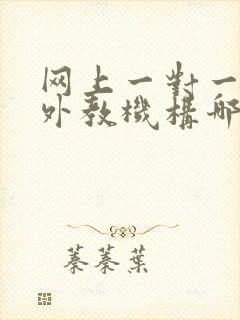 网上一對一
外教機構哪
蓁蓁葉